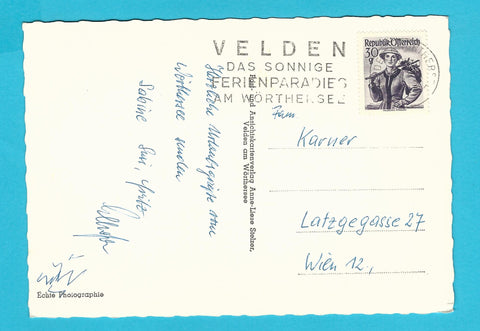 VELDEN
DAS SONNIGE
FERIENPARADIES
AM WÖRTHERSEE
Republik Österreich
30 g
Herzliche Urlaubsgrüße vom
Wörthersee senden
Sabine Susi, Fritz
Bild- und Ansichtskartenverlag Anne-Liese Stelzer,
Velden am Wörthersee
Fam.
Karner
Latzgegasse 27
Wien 12,
Echte Photographie